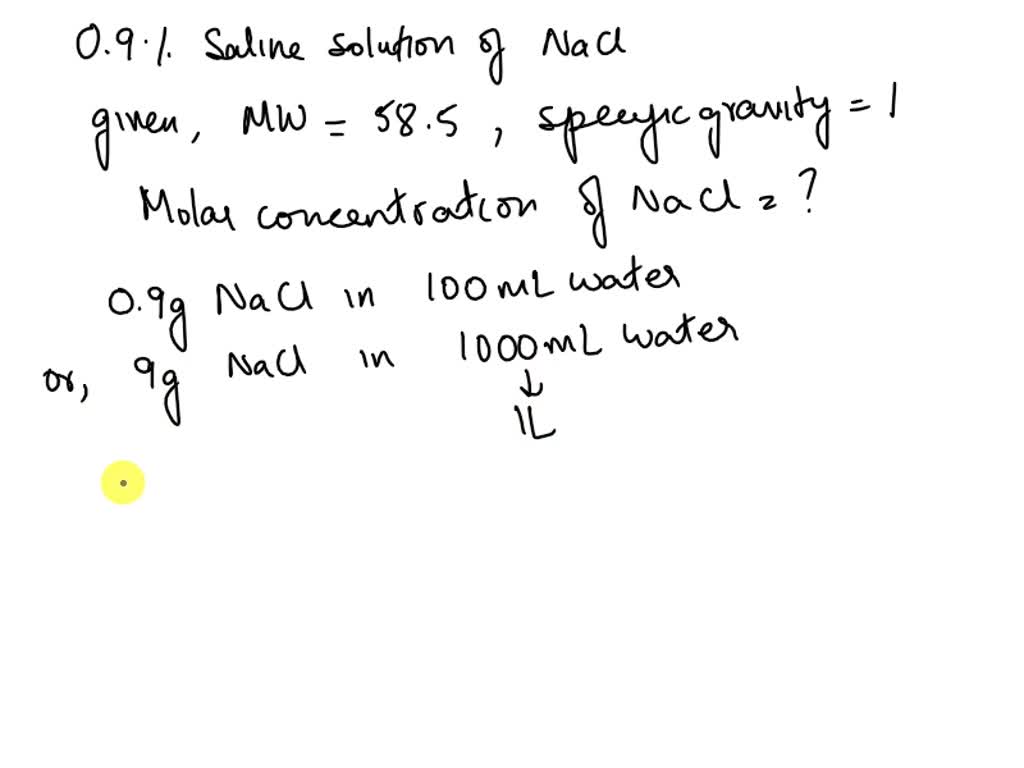 0.9·/. Saline solution of NaCl
given, MW = 58.5, specific gravity = 1
Molar concentration of NaCl = ?
0.9g NaCl in 100mL water
or, 9g NaCl in 1000mL water
↓
1L